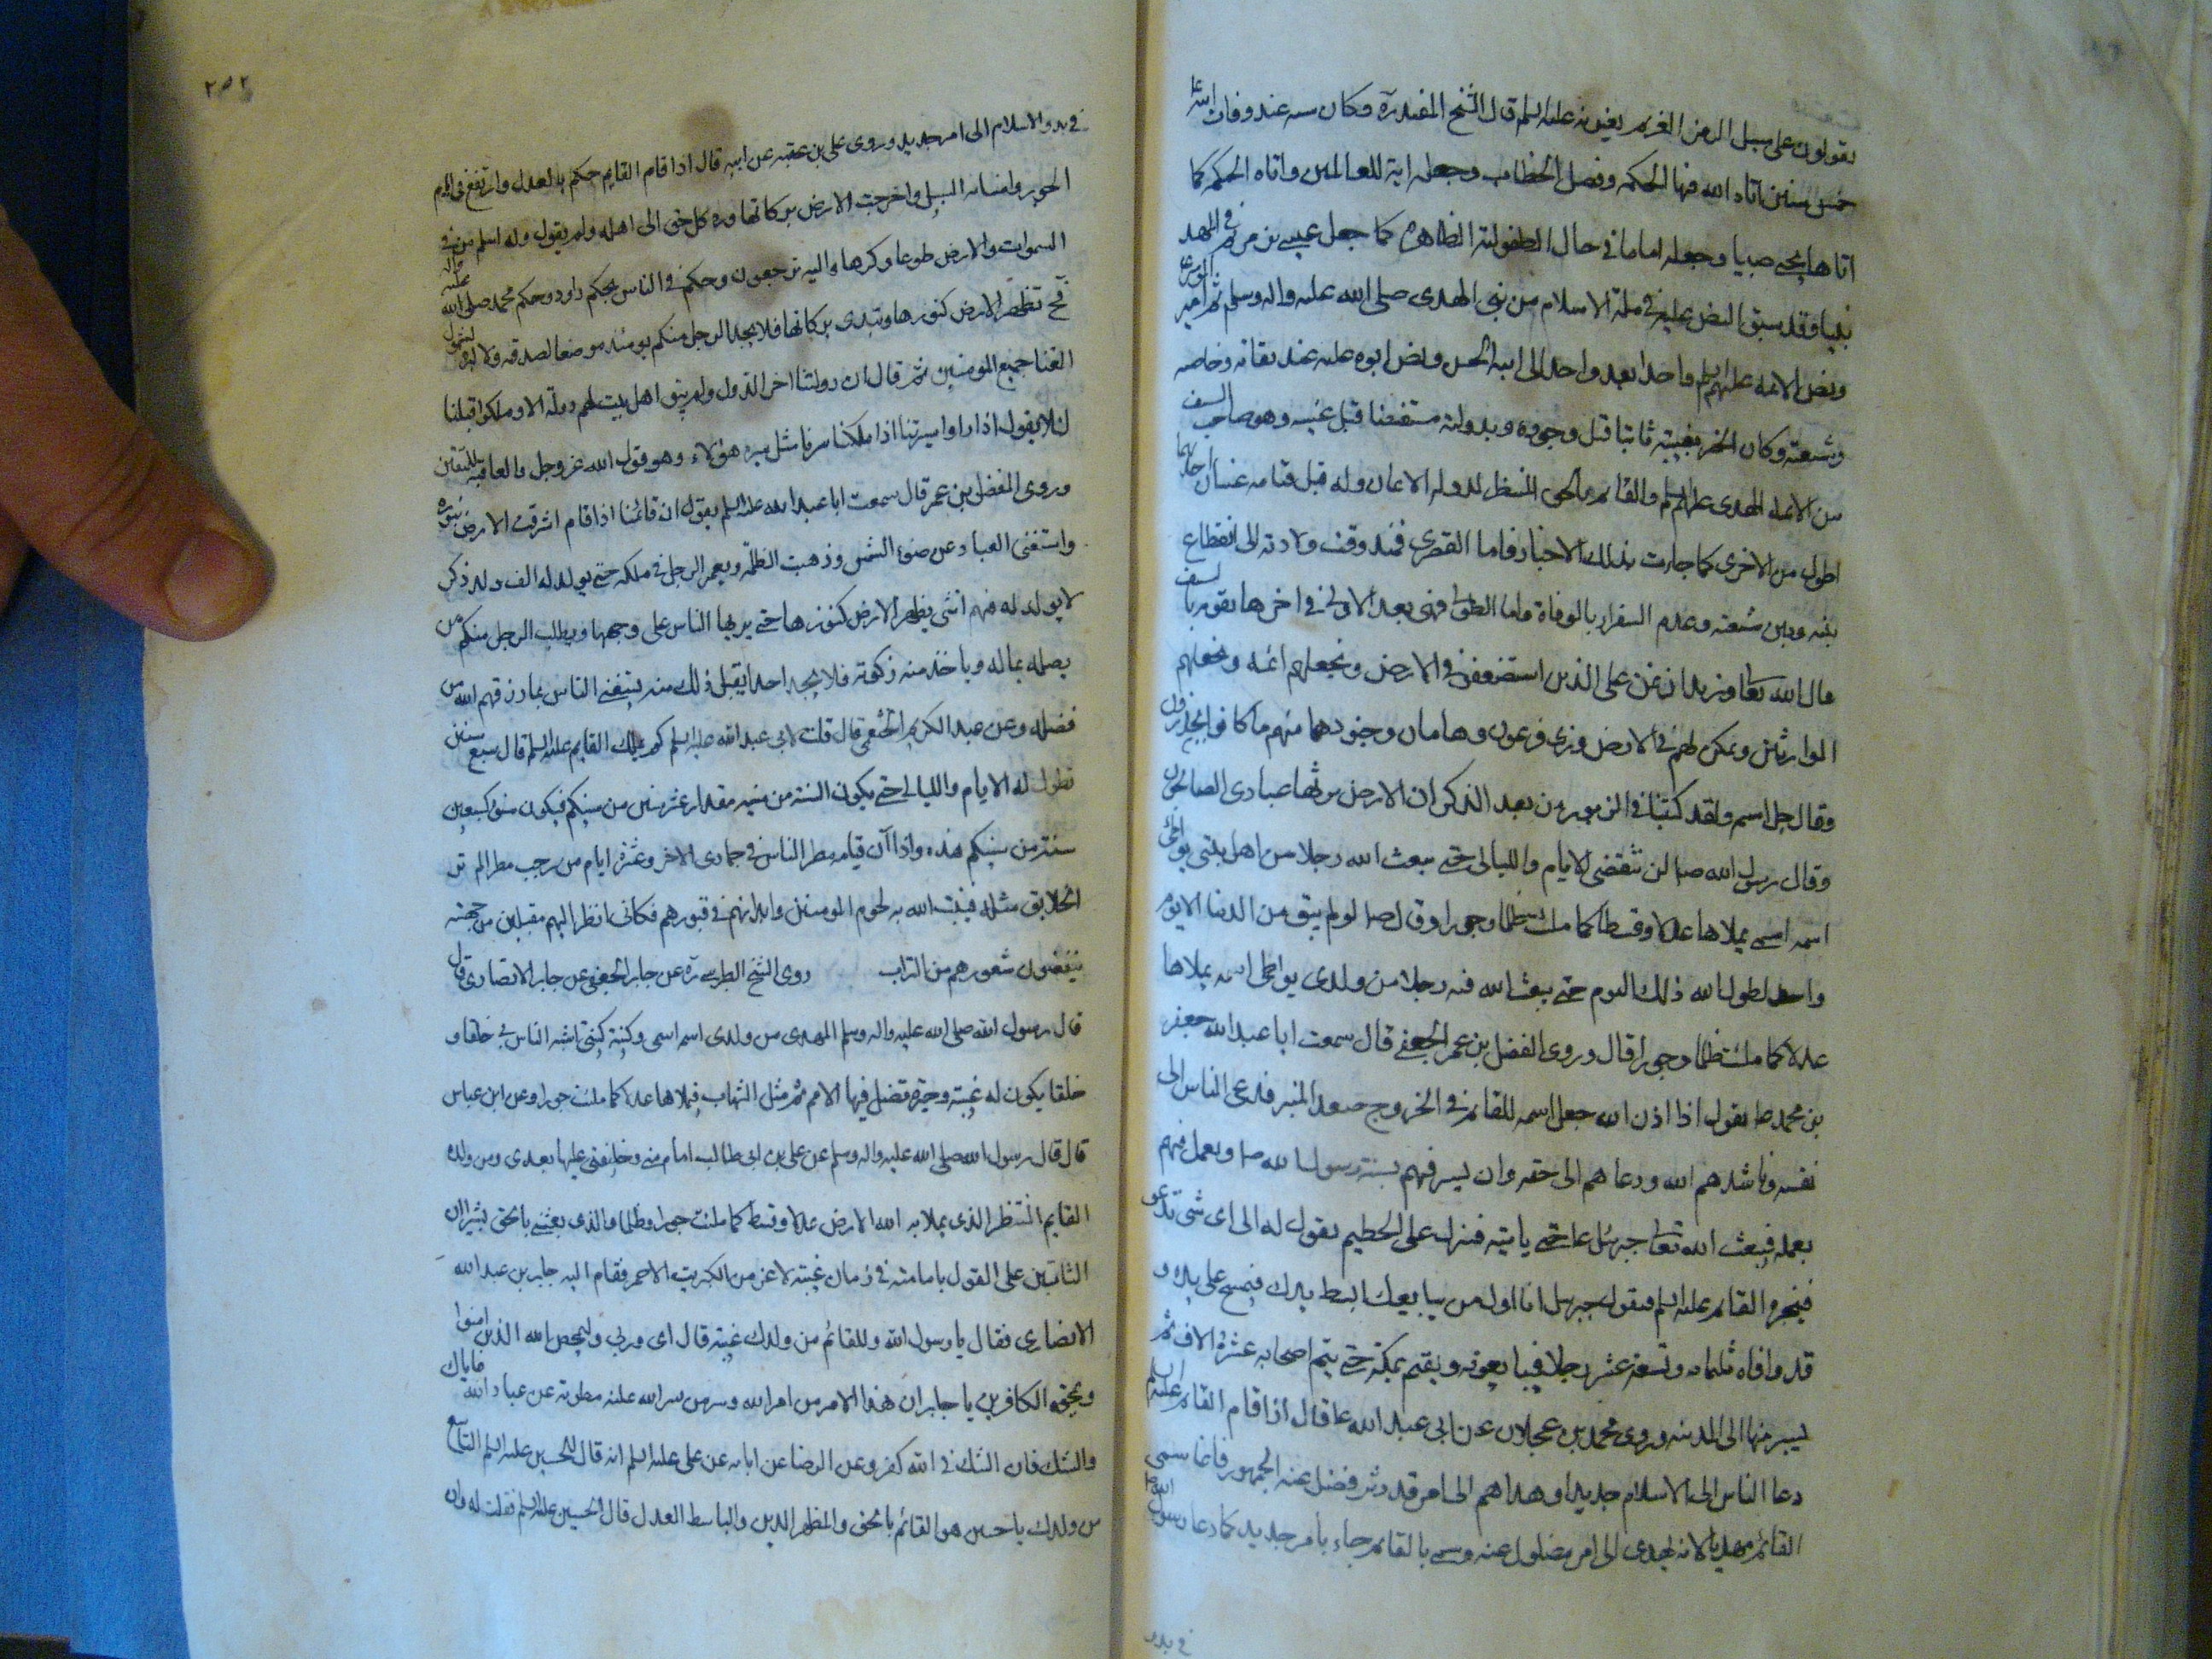 يقولون على سبيل الرمز الغريم يعنون به عليه السلم قال الشيخ المفيد ره وكان سنه عند وفات ابيه
خمس سنين اتاه الله فيها الحكمه وفصل الخطاب وجعله اية للعالمين واتاه الحكمه كما
اتاها يحيى صبيا وجعله اماما في حال الطفوليه الظاهره كما جعل عيسى بن مريم في المهد
نبيا وقد سبق النص عليه في ملة الاسلام من نبي الهدى صلى الله عليه واله وسلم ثم امير المومنين
ونص الائمه عليهم السلم واحدا بعد واحد الى ابيه الحسن ونص ابوه عليه عند ثقاته وخاصه
وشيعته وكان الخبر بغيبته ثابتا قبل وجوده وبدولته مستفيضا قبل غيبته وهو صاحب السيف
من الائمه الهدى عليهم السلم والقائم بالحق المنتظر لدوله الايمان وله قبل قيامه غيبتان احديهما
اطول من الاخرى كما جاءت بذلك الاخبار فاما القصرى فمنذ وقت ولادته الى انقطاع
بينه وبين شيعته وعدم السفراء بالوفاة واما الطولى فهي بعد الاولى في اخرها يقوم بالسيف
قال الله تعا ونريد ان نمن على الذين استضعفوا في الارض ونجعلهم ائمه ونجعلهم
الوارثين ونمكن لهم في الارض ونري فرعون وهامان وجنودهما منهم ما كانوا يحذرون
وقال جل اسمه ولقد كتبنا في الزبور من بعد الذكر ان الارض يرثها عبادي الصالحون
وقال رسول الله ص لن تنقضي الايام والليالي حتى يبعث الله رجلا من اهل بيتي يواطئ
اسمه اسمي يملاها عدلا وقسطا كما ملئت ظلما وجورا وقال ص لو لم يبق من الدنيا الا يوم
واحد لطول الله ذلك اليوم حتى يبعث الله فيه رجلا من ولدي يواطئ اسمه يملاها
عدلا كما ملئت ظلما وجورا قال وروى المفضل بن عمر الجعفي قال سمعت ابا عبد الله جعفر
بن محمد ع يقول اذا اذن الله جعل اسمه للقائم في الخروج صعد المنبر فدعى الناس الى
نفسه وناشدهم الله ودعاهم الى حقه وان يسير فيهم بسنة رسول الله ص ويعمل فيهم
بعمله فيبعث الله تعالى جبرئل ع حتى ياتيه فنزل على الحطيم يقول له الى اى شئ تدعو
فيخبره القائم عليه السلم فيقول جبرئل انا اول من يبايعك ابسط يدك فيمسح على يده و
قد وافاه ثلثمايه وتسعه عشر رجلا فيبايعونه ويقيم بمكة حتى يتم اصحابه عشرة الاف ثم
يسير منها الى المدينه وروى محمد بن عجلان عن ابي عبد الله ع قال اذا قام القائم عليه السلم
دعا الناس الى الاسلام جديدا وهداهم الى امر قد دثر فضل عنه الجمهور فانما سمى
القائم مهديا لانه يهدي الى امر مضلول عنه وسمى بالقائم جاء بامر جديد كما دعا رسول الله ص
في بدو
٢٥٢
في بدو الاسلام الى امر جديد وروى علي بن عقبه عن ابيه قال اذا قام القايم حكم بالعدل وارتفع في ايامه
الجور وامنت به السبل واخرجت الارض بركاتها ورد كل حق الى اهله ولم يقول وله اسلم من في
السموات والارض طوعا وكرها واليه ترجعون وحكم في الناس بحكم داود وحكم محمد صلى الله عليه واله
فح تظهر الارض كنوزها وتبدى بركاتها فلا يجد الرجل منكم يومئذ موضعا لصدقه ولا لبره لشمول
الغنا جميع المومنين ثم قال ان دولتنا اخر الدول ولم يبق اهل بيت لهم دولة الا وملكوا قبلنا
لئلا يقول اذا راوا سيرتنا اذا ملكنا سرنا مثل سيرة هؤلاء وهو قول الله عز وجل والعاقبه للمتقين
وروى المفضل بن عمر قال سمعت ابا عبد الله عليه السلم يقول ان قائمنا اذا قام اشرقت الارض بنوره
واستغنى العباد عن ضوء الشمس وذهبت الظلمه ويعمر الرجل في ملكه حتى يولد له الف ولد ذكر
لا يولد له فيهم انثى يظهر الارض كنوزها حتى يريها الناس على وجهها ويطلب الرجل منكم من
يصله بماله وياخذ منه زكوته فلا يجد احدا يقبل ذلك منه يستغنى الناس بما رزقهم الله من
فضله وعن عبد الكريم الخثعمي قال قلت لابي عبد الله عليه السلم كم يملك القايم عليه السلم قال سبع سنين
تطول له الايام والليالي حتى يكون السنة من سنيه مقدار عشر سنين من سنيكم فيكون سنو كسبعين
سنة من سنيكم هذه واذا آن قيامه مطر الناس في جمادى الاخر وعشرة ايام من رجب مطرا لم تر
الخلايق مثله فينبت الله به لحوم المومنين وابدانهم في قبورهم فكاني انظر اليهم مقبلين من جهينه
ينفضون شعورهم من التراب روى الشيخ الطبرسى ره عن جابر الجعفي عن جابر الانصاري قال
قال رسول الله صلى الله عليه واله وسلم المهدى من ولدى اسمه اسمى وكنيته كنيتى اشبه الناس بي خلقا و
خلقا يكون له غيبة وحيرة تضل فيها الامم ثم مثل الشهاب فيملاها عدلا كما ملئت جورا وعن ابن عباس
قال قال رسول الله صلى الله عليه واله وسلم عن علي بن ابى طالب امام منى وخليفتى عليها بعدى ومن ولده
القايم المنتظر الذي يملا به الله الارض عدلا وقسطا كما ملئت جورا وظلما والذى بعثنى بالحق بشيرا ان
الثابتين على القول بامامته في زمان غيبته لاعز من الكبريت الاحمر فقام اليه جابر بن عبد الله
الانصاري فقال يا رسول الله وللقائم من ولدك غيبة قال اى وربى وليمحص الله الذين امنوا
ويمحق الكافرين يا جابر ان هذا الامر من امر الله وسر من سر الله علته مطوية عن عباد الله فاياك
والشك فان الشك في الله كفر وعن الرضا عن ابائه عن على عليه السلم انه قال للحسين عليه السلم التاسع
من ولدك يا حسين هو القائم بالحق والمظهر الدين والباسط العدل قال الحسين عليه السلم فقلت له وان